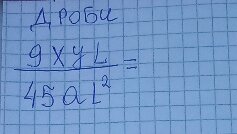 Дроби
9xyL
45aL² =